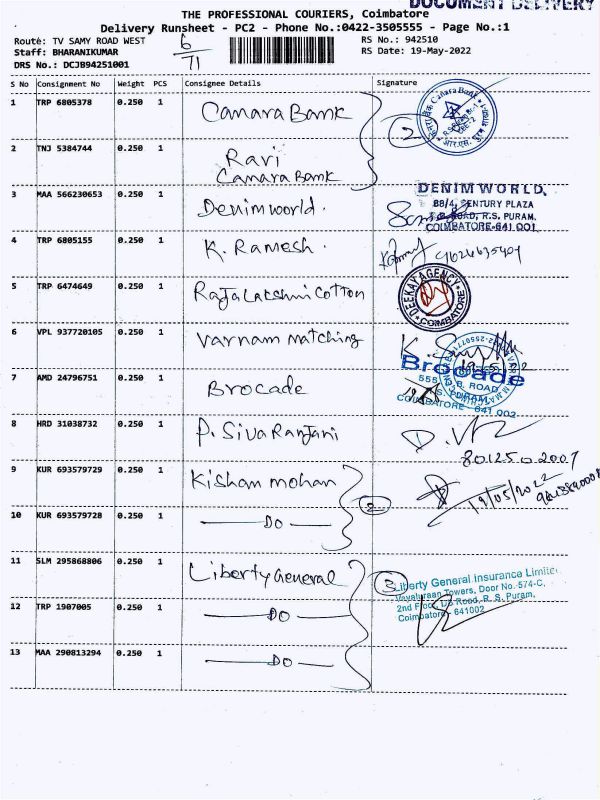 DOCUMENT DELIVERY
THE PROFESSIONAL COURIERS, Coimbatore
Delivery Runsheet - PC2 - Phone No.:0422-3505555 - Page No.:1
Route: TV SAMY ROAD WEST
Staff: BHARANIKUMAR
DRS No.: DCJB94251001
6
71
RS No.: 942510
RS Date: 19-May-2022
S No Consignment No Weight PCS Consignee Details Signature
1 TRP 6805378 0.250 1 Canara Bank
2
Canara Bank
2 TNJ 5384744 0.250 1 Ravi
Canara Bank
3 MAA 566230653 0.250 1 Denim world.
DENIM WORLD,
88/4, CENTURY PLAZA
ROAD, R.S. PURAM,
COIMBATORE-641 001
4 TRP 6805155 0.250 1 K. Ramesh.
5 TRP 6474649 0.250 1 Raja Lakshmi Cotton
DEEKAY AGENCY
COIMBATORE
6 VPL 937720105 0.250 1 Varnam matching
19/5/22
7 AMD 24796751 0.250 1 Brocade
Brocade
558 D.B. ROAD
R.S. PURAM,
COIMBATORE - 641 002
8 HRD 31038732 0.250 1 P. Siva Ranjani
801250 2007
9 KUR 693579729 0.250 1 Kishan mohan
2
19/05/2022
10 KUR 693579728 0.250 1 — DO —
11 SLM 295868806 0.250 1 Liberty General
3
Liberty General Insurance Limited
Towers, Door No. 574-C,
2nd Floor, D.B Road, R. S. Puram,
Coimbatore - 641002
12 TRP 1907005 0.250 1 — DO —
13 MAA 290813294 0.250 1 — DO —